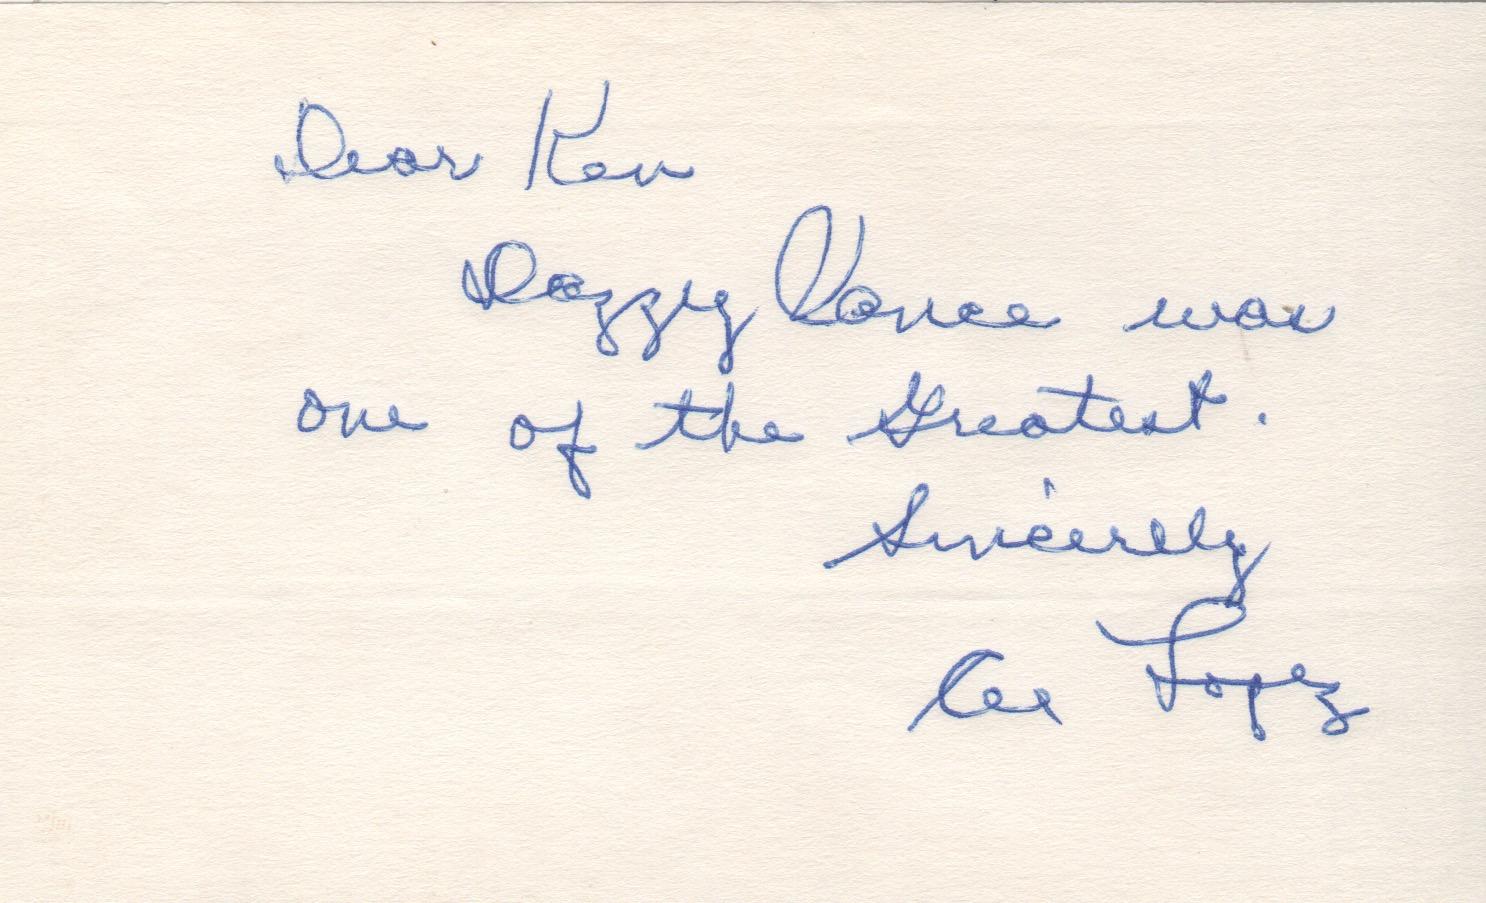 Dear Ken
Dazzy Vance was
one of the Greatest.
Sincerely
Al Lopez